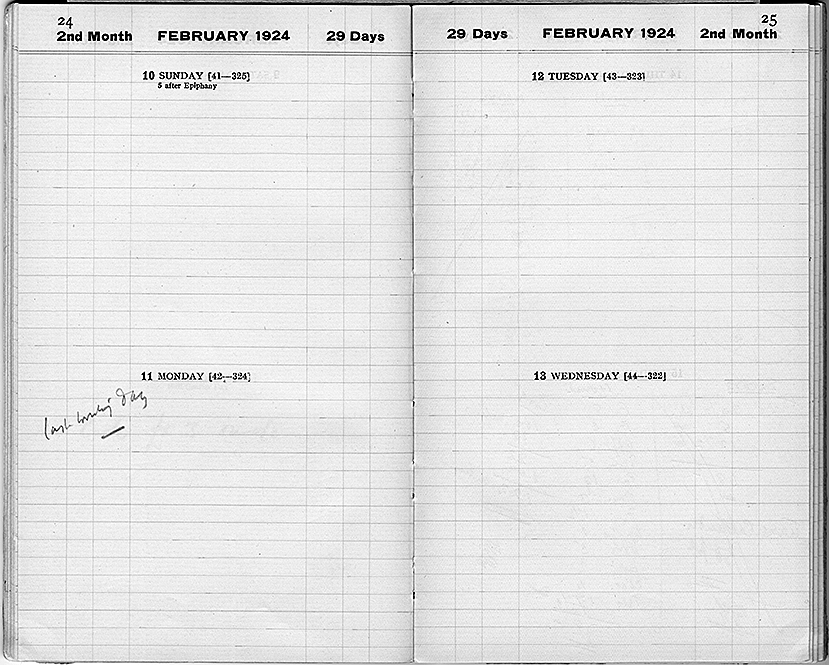 24
2nd Month FEBRUARY 1924 29 Days
10 SUNDAY [41—325]
5 after Epiphany
11 MONDAY [42—324]
last working Day
25
29 Days FEBRUARY 1924 2nd Month
12 TUESDAY [43—323]
13 WEDNESDAY [44—322]